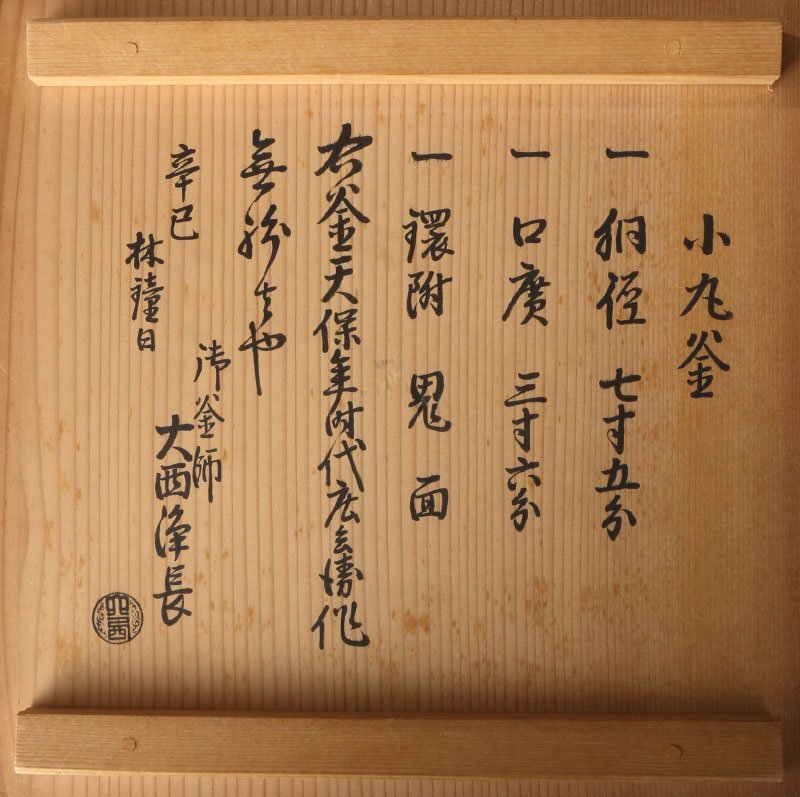 小丸釜
一 胴径 七寸五分
一 口廣 三寸六分
一 鐶附 鬼面
右釜天保年时代 作
無紛者也
辛巳
林鐘日
御釜師
大西浄長